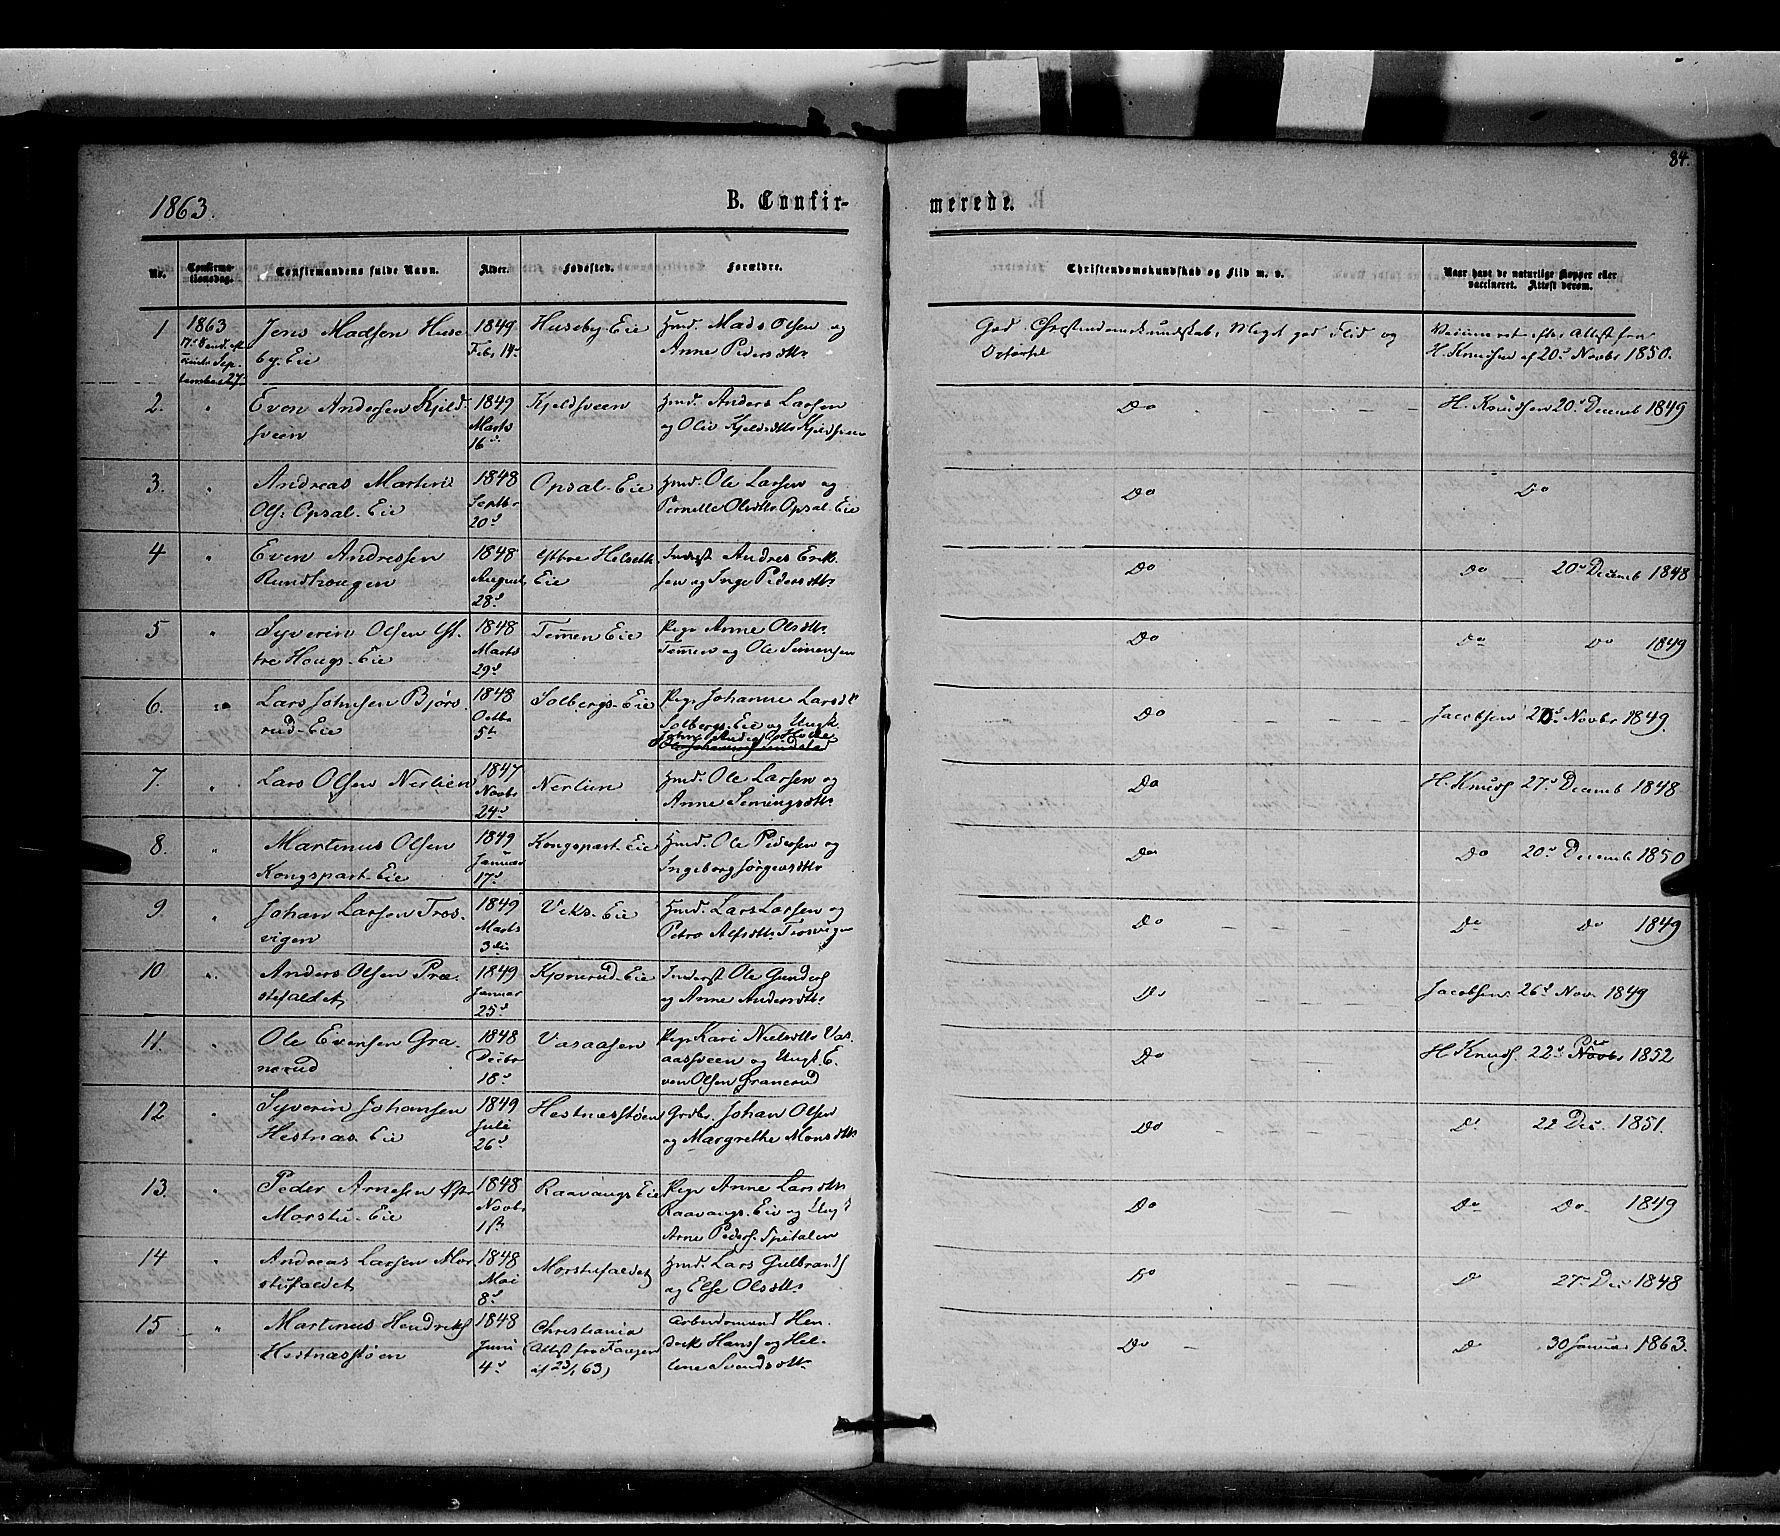 84.
1863.
B. Confir-
merede.
Nr.
Confirma-
tionsdag.
Confirmandens fulde Navn.
Alder.
Fødested.
Forældre.
Christendomskundskab og Flid m. v.
Naar havt de naturlige Kopper eller
vaccineret. Attest derom.
1
1863
September 27
Jens Madsen Huse-
by-Eie
1849
Febr 14
Huseby Eie
Hmd. Mads Olsen og
Anne Pedersdttr
God Christendomskundskab, Meget god Flid og
Opførsel
Vaccineret efter Attest fra
H. Knudsen af 20d Novbr 1850.
2.
"
Even Andersen Kjeld-
sveen
1849
Marts
16d
Kjeldsveen
Hmd. Anders Larsen
og Oliv Kjeldsdttr Kjeldsveen
Do
H. Knudsen 20d Decemb 1849
3.
"
Andreas Martin
Ols: Opsal-Eie
1848
Septbr
20d
Opsal-Eie
Hmd. Ole Larsen og
Pernille Olsdttr Opsal-Eie
Do
Do
4
"
Even Andressen
Rundhaugen
1848
August
28d
Eie
Inderst Andres Erik-
sen og Inge Pedersdttr
Do
Do 20d Decemb 1848
5
"
Syverin Olsen Øf-
tre Hougs-Eie
1848
Marts
29d
Temen Eie
Pige Anne Olsdttr
Temen og Ole Simensen
Do
Do Do 1849
6.
Lars Johnsen Bjørs-
rud-Eie
1848
Octbr
5t
Solbergs-Eie
Pige Johanne Larsd
Solbergs-Eie og Ungk
Do
Jacobsen 20d Novbr 1849.
7.
"
Lars Olsen Nerlien
1847
Novbr
24d
Nerlien
Hmd. Ole Larsen og
Anne Semingsdttr
Do
H. Knuds 27d Decemb 1848
8.
"
Martinus Olsen
Kongspart-Eie
1849
Januar
17d
Kongspart-Eie
Hmd. Ole Pedersen og
Ingeborg Jørgensdttr
Do
Do 20d Decemb 1850
9.
"
Johan Larsen Tros-
vigen
1849
Marts
3die
Viks-Eie
Hmd. Lars Larsen og
Petro Alfsdttr Trosvigen
Do
Do Do 1849
10
"
Anders Olsen Præ-
stefaldet
1849
Januar
25d
Kjonerud-Eie
Inderst Ole Gunders
og Anne Andersdttr
Do
Jacobsen 26d Nov 1849
11.
"
Ole Evensen Gra-
nerud
1848
Decbr
18d
Vasaasen
Pige Kari Nielsdttr Vas-
aasveen og Ungk. E-
ven Olsen Granerud
Do
H. Knuds. 22d Novbr Dec 1852
12
"
Syverin Johansen
Hestnæs-Eie
1849
Juli
26d
Hestnæsstøen
Grdbr. Johan Olsen
og Margrethe Monsdttr
Do
Do 22 Dec. 1851.
13.
"
Peder Arnesen
Morstu-Eie
1848
Novbr
1ste
Raavangs Eie
Pige Anne Larsdttr
Raavangs-Eie og Ung
Arne Peders. Spitalen
Do
Do Do 1849
14
"
Andreas Larsen Mor-
stufaldet
1848
Mai
8d
Morstufaldet
Hmd. Lars Gulbrands
og Else Olsdttr
Do
D 27 Dec 1848
15
"
Martinus Hendriks
Hestnæsstøen
1848
Juni
4d
Christiania
(Attest fra Fangen
af 23/1 63)
Arbeidsmand Hen-
drik Hans og Hel-
lene Svendsdttr
Do
D 30 Januar 1863.